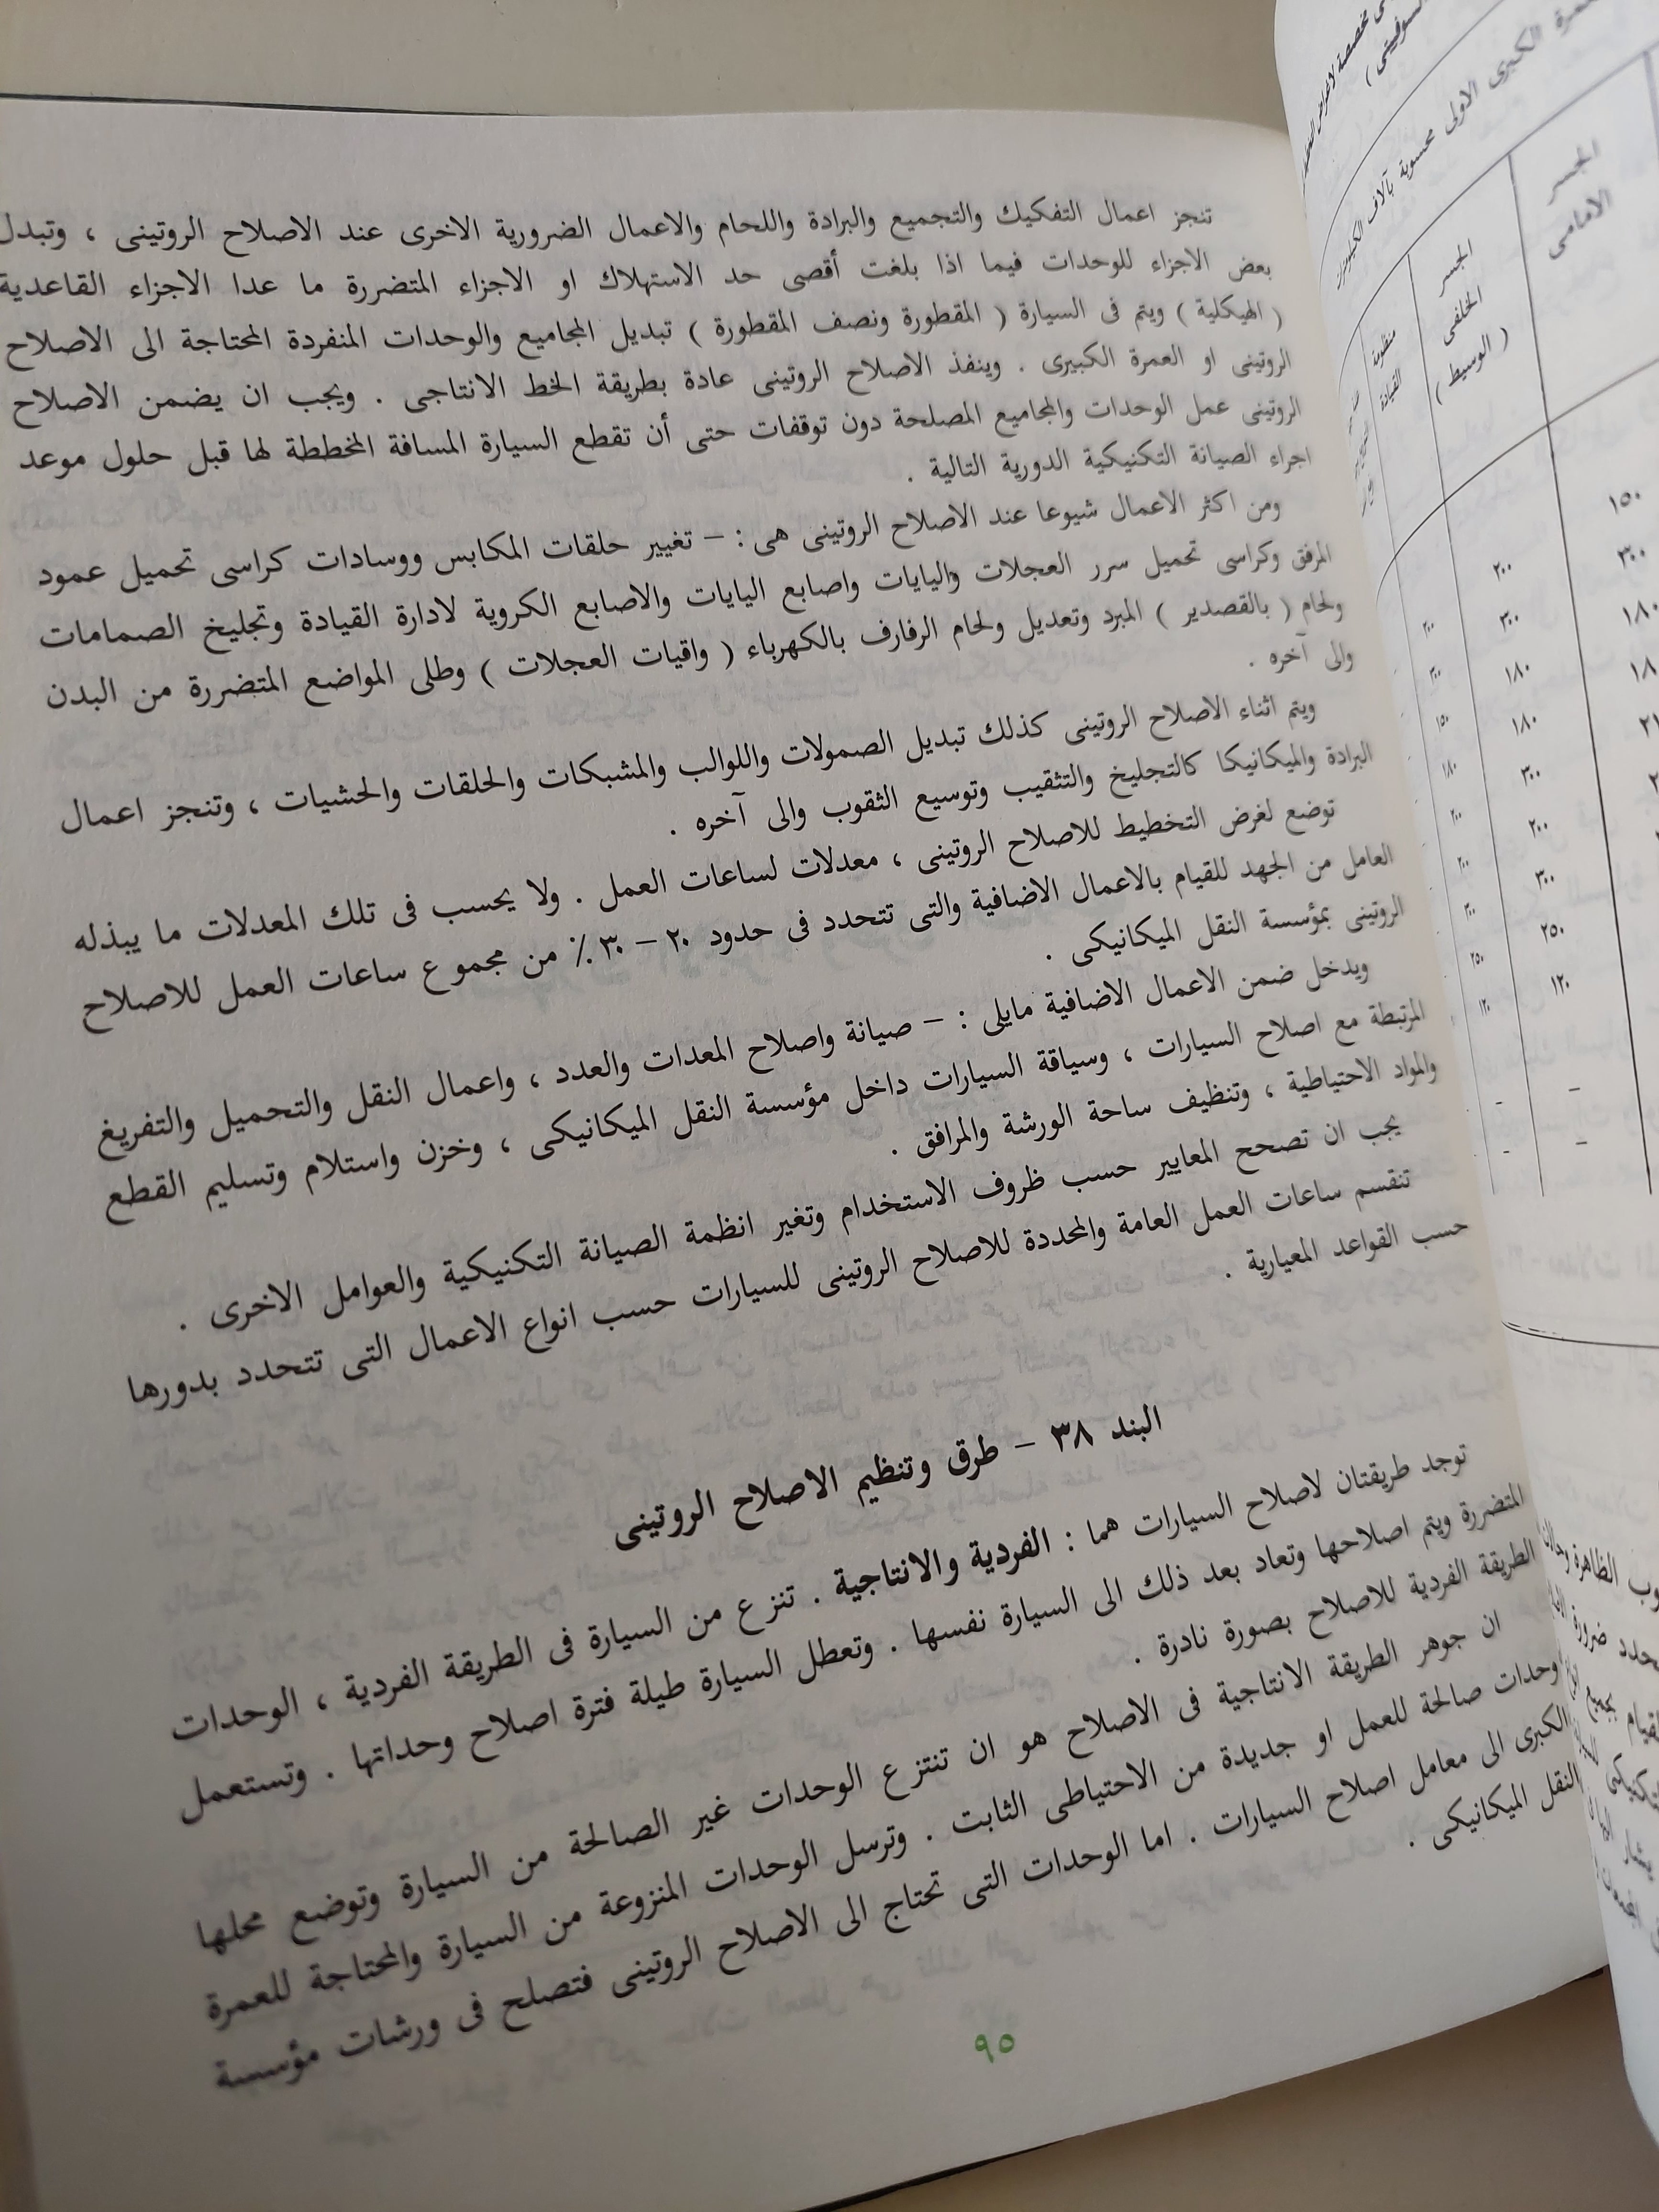 تنجز اعمال التفكيك والتجميع والبرادة واللحام والاعمال الضرورية الاخرى عند الاصلاح الروتينى ، وتبدل
بعض الاجزاء للوحدات فيما اذا بلغت أقصى حد الاستهلاك او الاجزاء المتضررة ما عدا الاجزاء القاعدية
( الهيكلية ) ويتم فى السيارة ( المقطورة ونصف المقطورة ) تبديل المجاميع والوحدات المنفردة المحتاجة الى الاصلاح
الروتينى او العمرة الكبيرى . وينفذ الاصلاح الروتينى عادة بطريقة الخط الانتاجى . ويجب ان يضمن الاصلاح
الروتينى عمل الوحدات والمجاميع المصلحة دون توقفات حتى أن تقطع السيارة المسافة المخططة لها قبل حلول موعد
اجراء الصيانة التكنيكية الدورية التالية .
ومن اكثر الاعمال شيوعا عند الاصلاح الروتينى هى : – تغيير حلقات المكابس ووسادات كراسى تحميل عمود
المرفق وكراسى تحميل سرر العجلات واليايات واصابع اليايات والاصابع الكروية لادارة القيادة وتجليخ الصمامات
ولحام ( بالقصدير ) المبرد وتعديل ولحام الرفارف بالكهرباء ( واقيات العجلات ) وطلى المواضع المتضررة من البدن
والى آخره .
ويتم اثناء الاصلاح الروتينى كذلك تبديل الصمولات واللوالب والمشبكات والحلقات والحشيات ، وتنجز اعمال
البرادة والميكانيكا كالتجليخ والتثقيب وتوسيع الثقوب والى آخره .
توضع لغرض التخطيط للاصلاح الروتينى ، معدلات لساعات العمل . ولا يحسب فى تلك المعدلات ما يبذله
العامل من الجهد للقيام بالاعمال الاضافية والتى تتحدد فى حدود ٢٠ – ٣٠ ٪ من مجموع ساعات العمل للاصلاح
الروتينى بمؤسسة النقل الميكانيكى .
ويدخل ضمن الاعمال الاضافية مايلى : – صيانة واصلاح المعدات والعدد ، واعمال النقل والتحميل والتفريغ
المرتبطة مع اصلاح السيارات ، وسياقة السيارات داخل مؤسسة النقل الميكانيكى ، وخزن واستلام وتسليم القطع
والمواد الاحتياطية ، وتنظيف ساحة الورشة والمرافق .
يجب ان تصحح المعايير حسب ظروف الاستخدام وتغير انظمة الصيانة التكنيكية والعوامل الاخرى .
تنقسم ساعات العمل العامة والمحددة للاصلاح الروتينى للسيارات حسب انواع الاعمال التى تتحدد بدورها
حسب القواعد المعيارية .
البند ٣٨ – طرق وتنظيم الاصلاح الروتينى
توجد طريقتان لاصلاح السيارات هما : الفردية والانتاجية . تنزع من السيارة فى الطريقة الفردية ، الوحدات
المتضررة ويتم اصلاحها وتعاد بعد ذلك الى السيارة نفسها . وتعطل السيارة طيلة فترة اصلاح وحداتها . وتستعمل
الطريقة الفردية للاصلاح بصورة نادرة .
ان جوهر الطريقة الانتاجية فى الاصلاح هو ان تنتزع الوحدات غير الصالحة من السيارة وتوضع محلها
وحدات صالحة للعمل او جديدة من الاحتياطى الثابت . وترسل الوحدات المنزوعة من السيارة والمحتاجة للعمرة
الكبرى الى معامل اصلاح السيارات . اما الوحدات التى تحتاج الى الاصلاح الروتينى فتصلح فى ورشات مؤسسة
النقل الميكانيكى .
٩٥
الكبرى الاولى محسوبة بآلاف
الجسر
الامامى
الجسر
الخلفى
( الوسيط )
منظومة
القيادة
١٥٠
٣٠٠ ٢٠٠
١٨٠ ٣٠٠ ٢٠٠
١٨٠ ٣٠٠
١٨٠ ١٥٠
٣٠٠ ١٨٠
٢٠٠ ٢٠٠
٣٠٠ ٢٠٠
٢٥٠ ٣٠٠
١٢٠ ٢٥٠
١٢٠
– –
– –